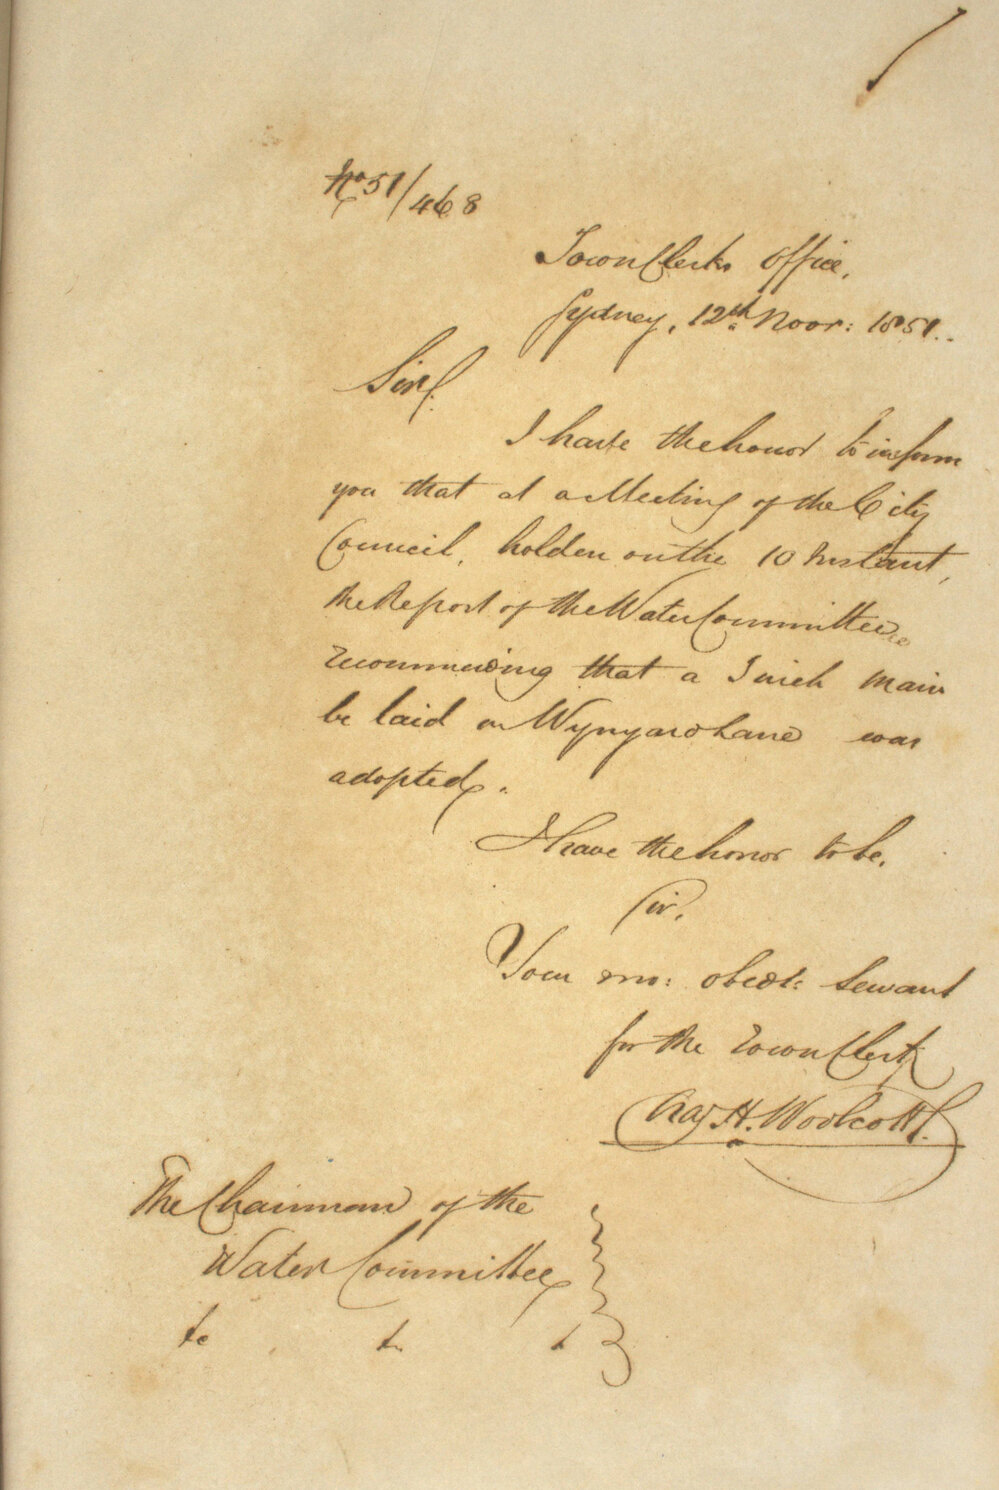 No 51/468
Town Clerks Office,
Sydney, 12th Novr: 1851.
Sir,
I have the honor to inform
you that at a Meeting of the City
Council, holden on the 10 Instant,
the Report of the Water Committee
recommending that a 3 inch main
be laid in Wynyard Lane was
adopted.
I have the honor to be,
Sir,
Your mo: obedt: Servant
for the Town Clerk
Chas H. Woolcott.
The Chairman of the
Water Committee
&c &c &c